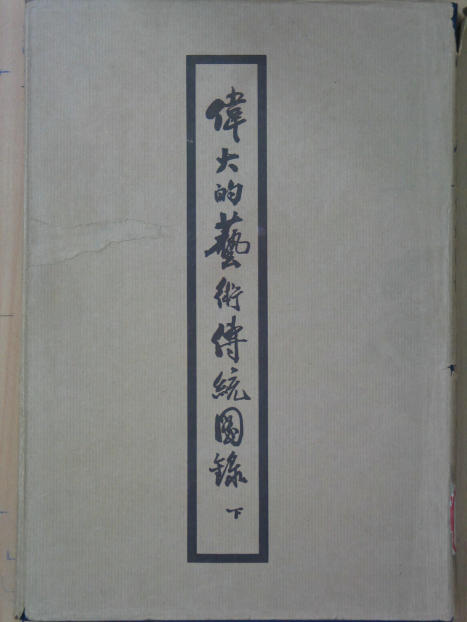 偉大的藝術傳統圖錄 下